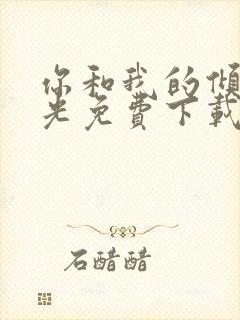 你和我的倾
光免费下载
石醋醋